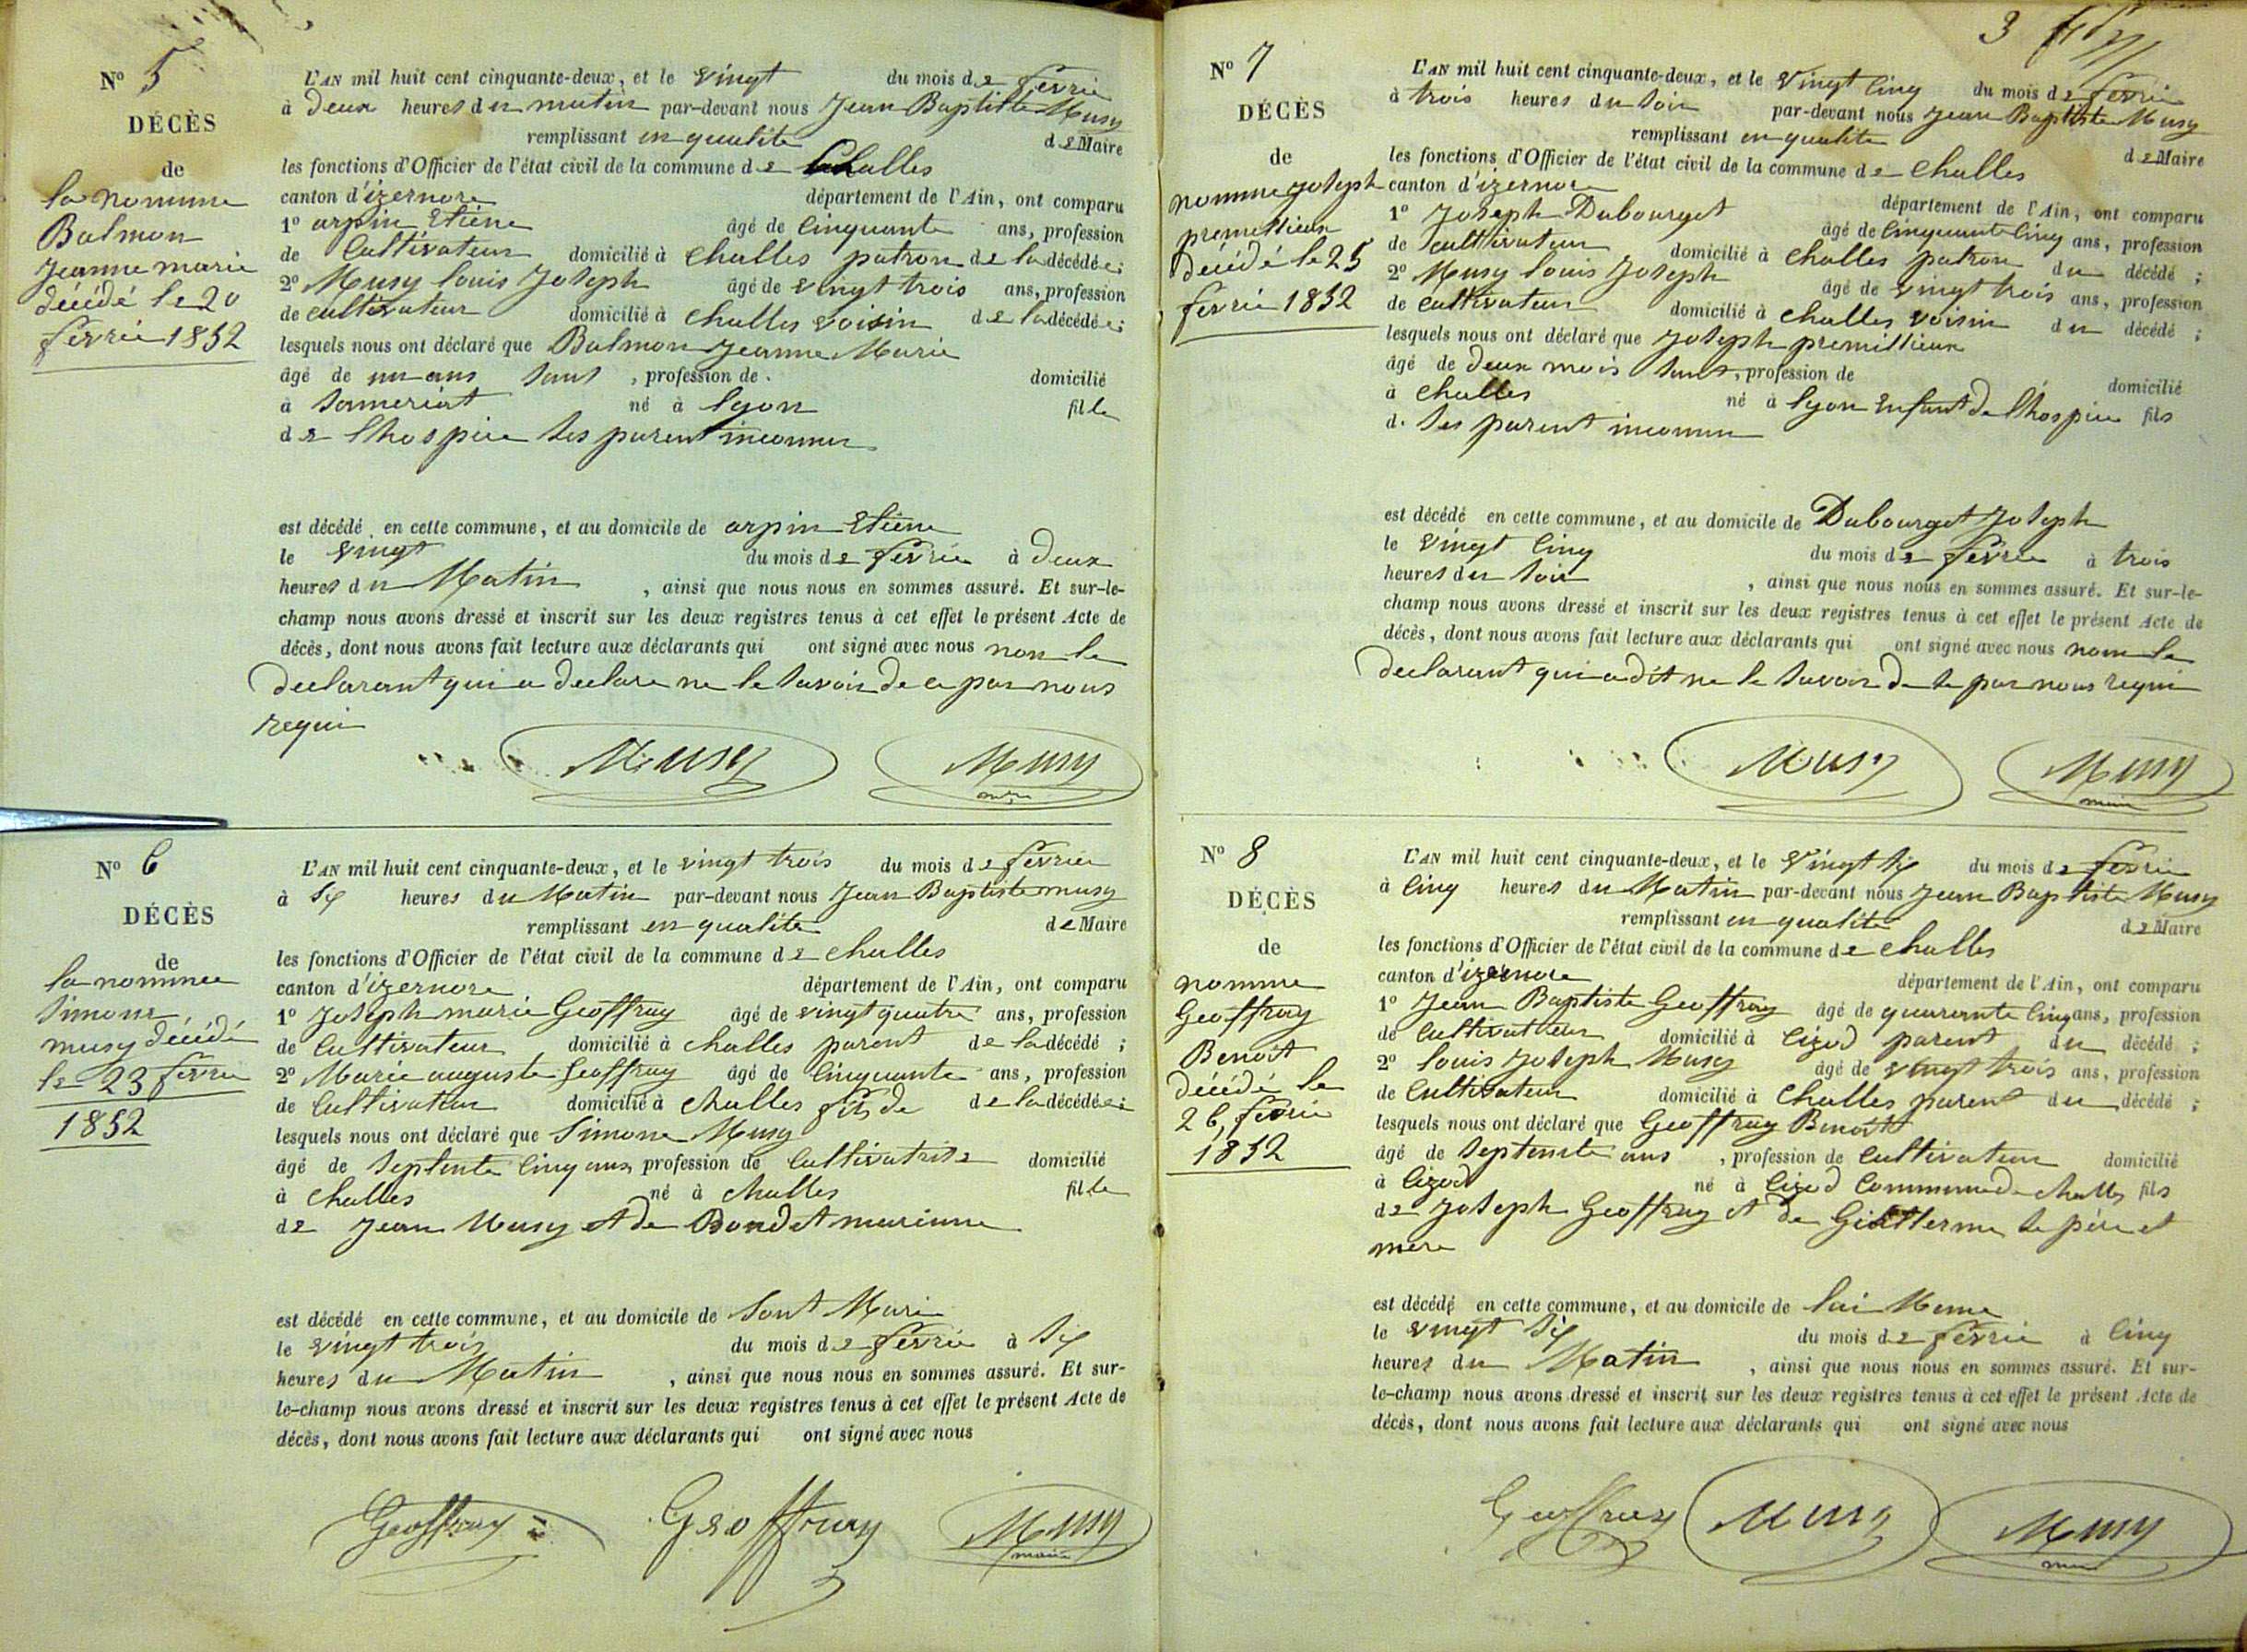 Nº 5
DÉCÈS
de
la nomme
Balmon
Jeanne marie
décédé le 20
fevrie 1852
L'AN mil huit cent cinquante-deux, et le vingt du mois de fevrie
à deux heures du matin par-devant nous Jean Baptiste Musy
remplissant en qualite de Maire
les fonctions d'Officier de l'état civil de la commune de Challes
canton d'izernore département de l'Ain, ont comparu
1º arpin Etiene âgé de cinquante ans, profession
de Cultivateur domicilié à Challes patron de la décédée;
2º Musy louis Joseph âgé de vingt trois ans, profession
de cultivateur domicilié à Challes voisin de la décédée;
lesquels nous ont déclaré que Balmon Jeanne Marie
âgé de un ans sans, profession de domicilié
à Sonneriat né à lyon fille
de lhospice ses parent inconnus
est décédé en cette commune, et au domicile de arpin Etiene
le vingt du mois de fevrie à deux
heures du Matin, ainsi que nous nous en sommes assuré. Et sur-le-
champ nous avons dressé et inscrit sur les deux registres tenus à cet effet le présent Acte de
décès, dont nous avons fait lecture aux déclarants qui ont signé avec nous non le
declarant qui a declare ne le savoir de ce par nous
requi
Musy Musy
maire
Nº 6
DÉCÈS
de
la nommee
Simone
musy décédé
le 23 fevrie
1852
L'AN mil huit cent cinquante-deux, et le vingt trois du mois de fevrier
à six heures du Matin par-devant nous Jean Baptiste musy
remplissant en qualite de Maire
les fonctions d'Officier de l'état civil de la commune de challes
canton d'izernore département de l'Ain, ont comparu
1º Joseph marie Geoffray âgé de vingt quatre ans, profession
de Cultivateur domicilié à challes parent de la décédé;
2º Marie auguste Geoffray âgé de Cinquante ans, profession
de Cultivateur domicilié à challes fis de de la décédée;
lesquels nous ont déclaré que Simone Musy
âgé de Septente Cinq ans, profession de Cultivatrise domicilié
à challes né à challes fille
de Jean Musy et de Bondet marianne
est décédé en cette commune, et au domicile de Sont Mari
le vingt trois du mois de fevrie à six
heures du Matin, ainsi que nous nous en sommes assuré. Et sur-
le-champ nous avons dressé et inscrit sur les deux registres tenus à cet effet le présent Acte de
décès, dont nous avons fait lecture aux déclarants qui ont signé avec nous
Geoffray Geoffray Musy
maire
3
Nº 7
DÉCÈS
de
nomme Joseph
premillieux
décédé le 25
fevrie 1852
L'AN mil huit cent cinquante-deux, et le vingt cinq du mois de fevrie
à trois heures du soir par-devant nous Jean Baptiste Musy
remplissant en qualite de Maire
les fonctions d'Officier de l'état civil de la commune de challes
canton d'izernore département de l'Ain, ont comparu
1º Joseph Dubourget âgé de cinquante cinq ans, profession
de cultivateur domicilié à challes patron du décédé;
2º Musy louis Joseph âgé de vingt trois ans, profession
de cultivateur domicilié à challes voisin du décédé;
lesquels nous ont déclaré que Joseph premillieux
âgé de deux mois sans, profession de domicilié
à challes né à lyon enfant de lhospice fils
d. ses parent inconnu
est décédé en cette commune, et au domicile de Dubourget Joseph
le vingt cinq du mois de fevrie à trois
heures du soir, ainsi que nous nous en sommes assuré. Et sur-le-
champ nous avons dressé et inscrit sur les deux registres tenus à cet effet le présent Acte de
décès, dont nous avons fait lecture aux déclarants qui ont signé avec nous nom le
declarant qui a dit ne le savoir de se par nous requi
Musy Musy
maire
Nº 8
DÉCÈS
de
nomme
Geoffray
Benoit
décédé le
26 fevrie
1852
L'AN mil huit cent cinquante-deux, et le vingt six du mois de fevrie
à cinq heures du Matin par-devant nous Jean Baptiste Musy
remplissant en qualite de Maire
les fonctions d'Officier de l'état civil de la commune de challes
canton d'izernore département de l'Ain, ont comparu
1º Jean Baptiste Geoffray âgé de quarante cinq ans, profession
de Cultivatteur domicilié à Cizod parent du décédé;
2º louis Joseph Musy âgé de vingt trois ans, profession
de Cultivateur domicilié à Challes parent du décédé;
lesquels nous ont déclaré que Geoffray Benoit
âgé de Septente ans, profession de Cultivateur domicilié
à Cizod né à Cizod Commune de challes fils
de Joseph Geoffray et de se père et
mere
est décédé en cette commune, et au domicile de lui Meme
le vingt six du mois de fevrie à cinq
heures du Matin, ainsi que nous nous en sommes assuré. Et sur-
le-champ nous avons dressé et inscrit sur les deux registres tenus à cet effet le présent Acte de
décès, dont nous avons fait lecture aux déclarants qui ont signé avec nous
Geoffray Musy Musy
maire